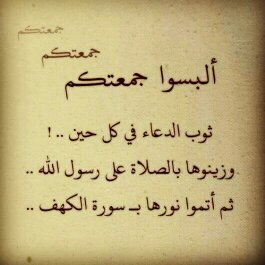 جمعتكم
جمعتكم
ألبسوا جمعتكم
ثوب الدعاء في كل حين .. !
وزينوها بالصلاة على رسول الله ..
ثم أتموا نورها بـ سورة الكهف ..